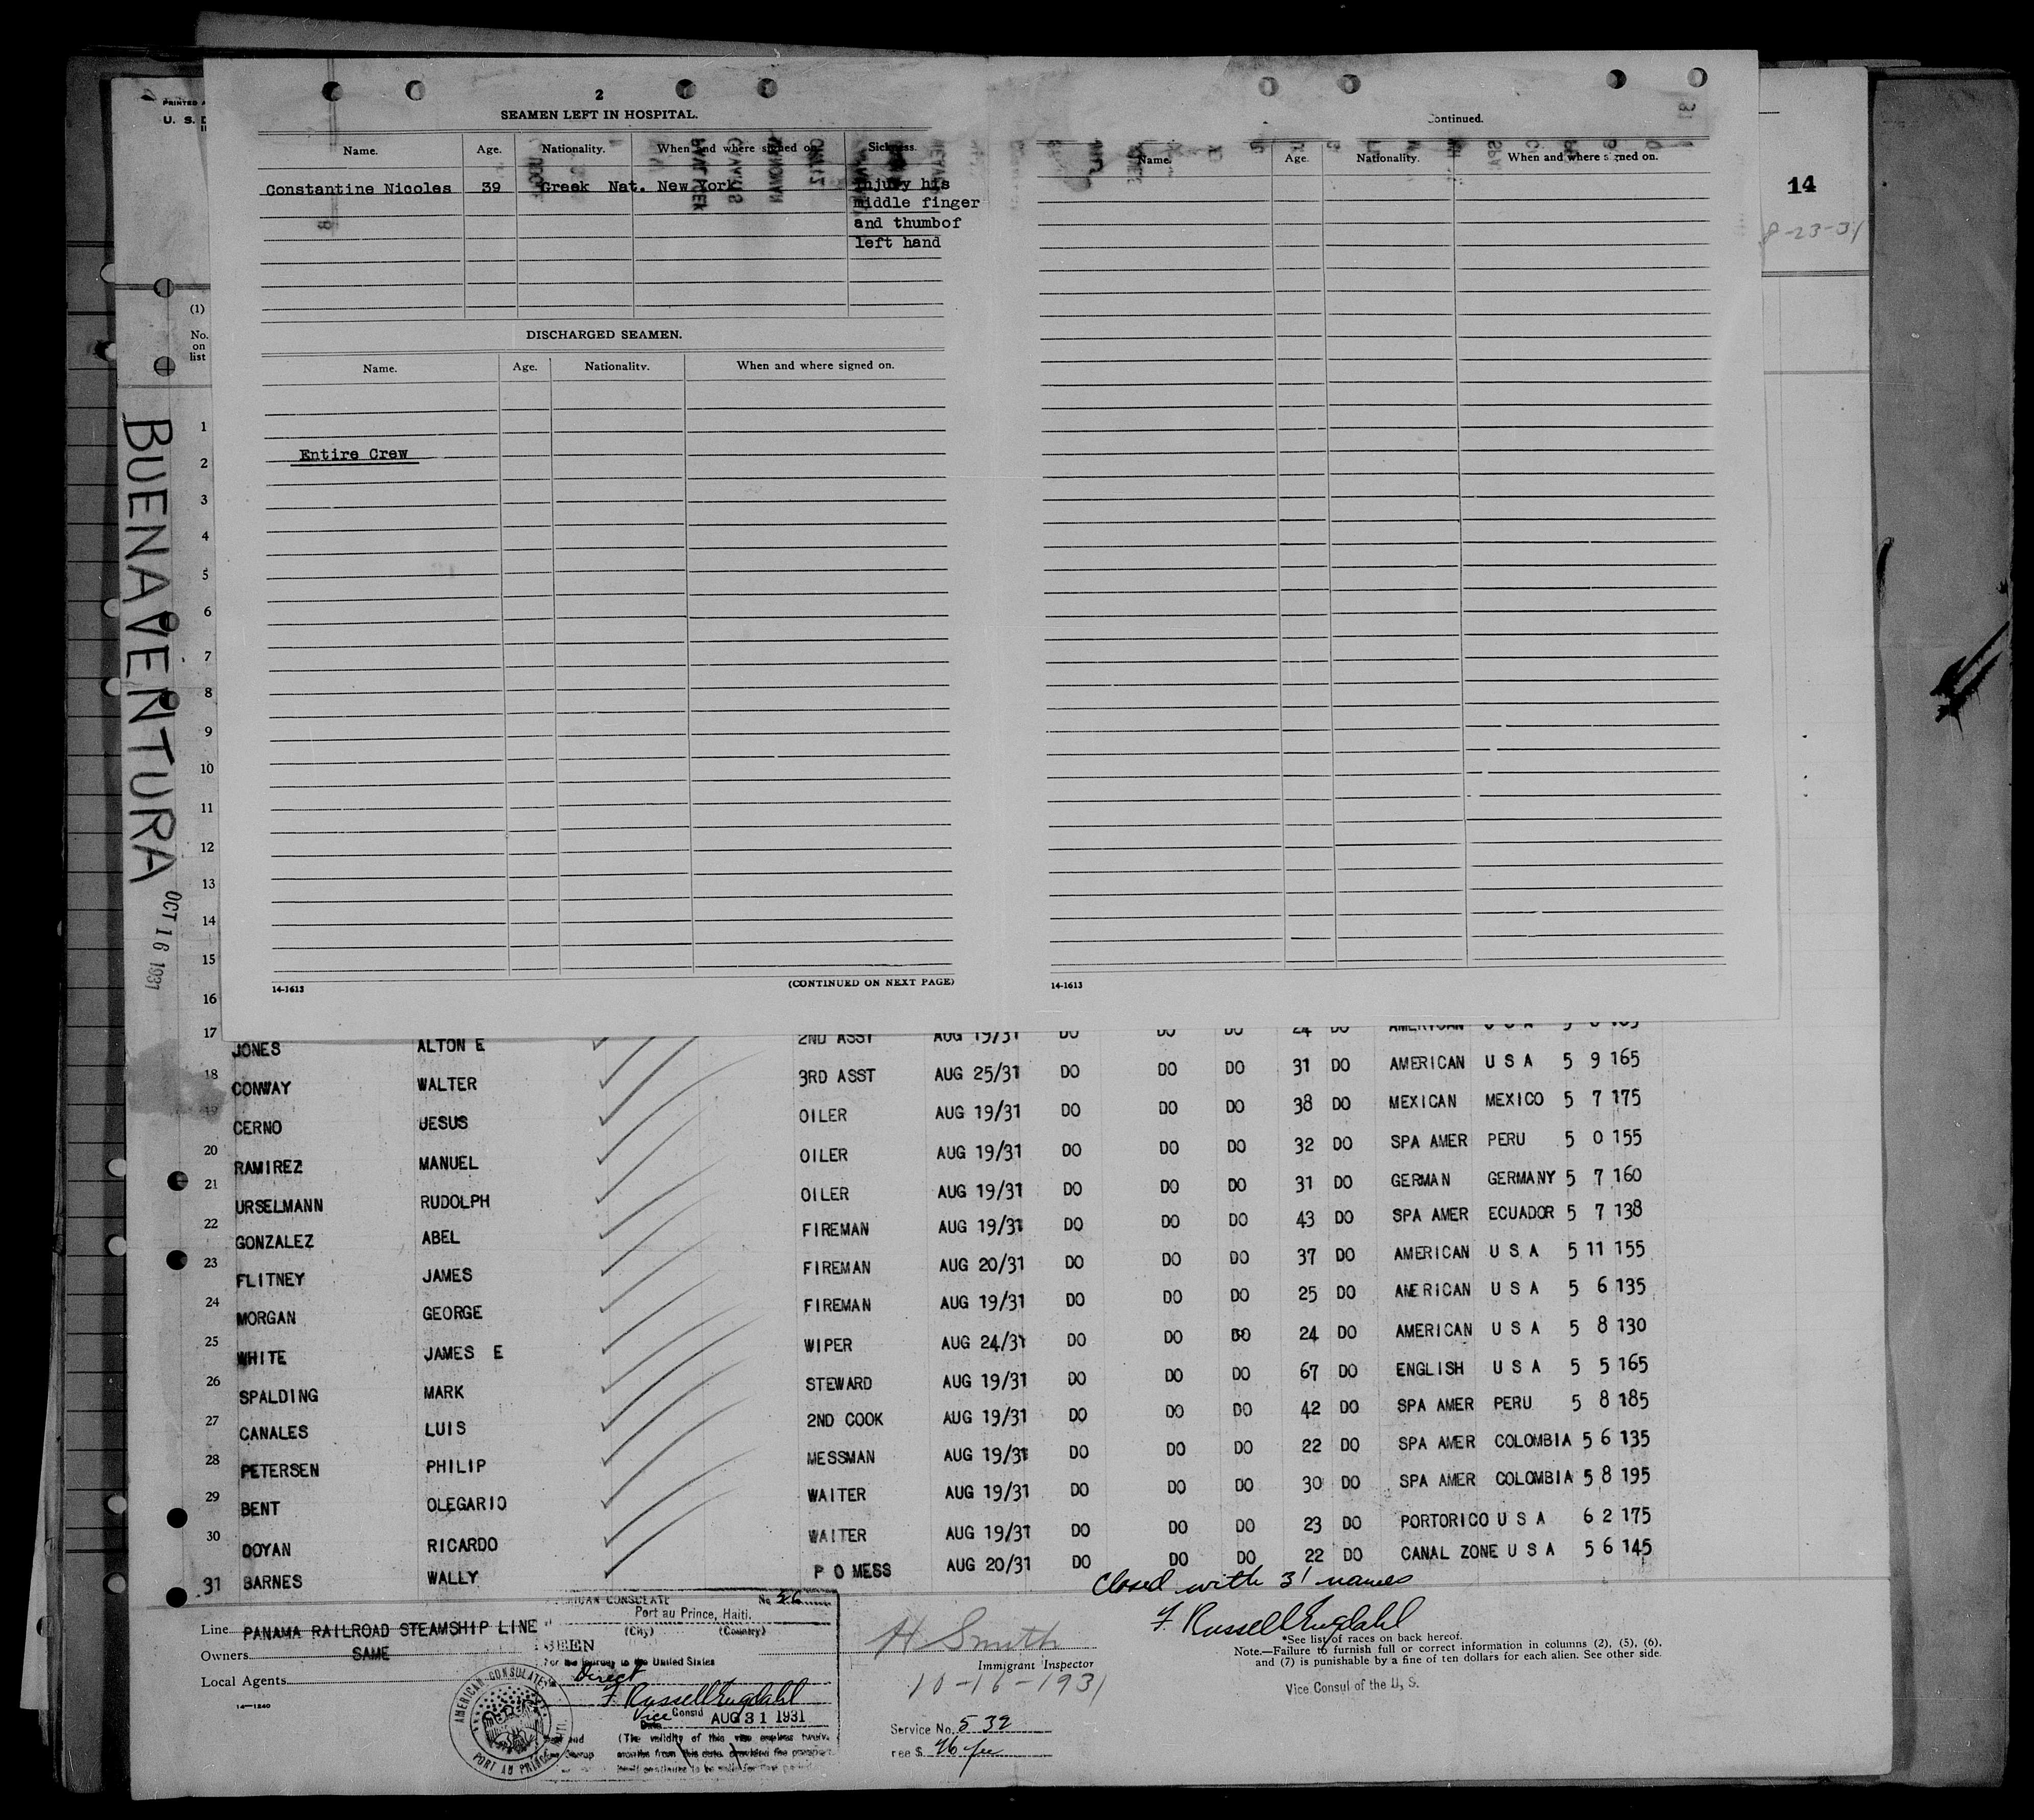 PRINTED
U. S. D
2
SEAMEN LEFT IN HOSPITAL.
Name. Age. Nationality. When and where signed on. Sickness.
Constantine Nicoles 39 Greek Nat. New York injury his
middle finger
and thumbof
left hand
DISCHARGED SEAMEN.
Name. Age. Nationality. When and where signed on.
Entire Crew
14-1613 (CONTINUED ON NEXT PAGE)
Continued.
Name. Age. Nationality. When and where signed on.
14-1613
14
8-23-31
(1)
No.
on
list
BUENAVENTURA
OCT 16 1931
1
2
3
4
5
6
7
8
9
10
11
12
13
14
15
16
17 JONES ALTON E 2ND ASST AUG 19/31 DO DO DO 24 DO AMERICAN U S A
18 CONWAY WALTER 3RD ASST AUG 25/31 DO DO DO 31 DO AMERICAN U S A 5 9 165
19 CERNO JESUS OILER AUG 19/31 DO DO DO 38 DO MEXICAN MEXICO 5 7 175
20 RAMIREZ MANUEL OILER AUG 19/31 DO DO DO 32 DO SPA AMER PERU 5 0 155
21 URSELMANN RUDOLPH OILER AUG 19/31 DO DO DO 31 DO GERMAN GERMANY 5 7 160
22 GONZALEZ ABEL FIREMAN AUG 19/31 DO DO DO 43 DO SPA AMER ECUADOR 5 7 138
23 FLITNEY JAMES FIREMAN AUG 20/31 DO DO DO 37 DO AMERICAN U S A 5 11 155
24 MORGAN GEORGE FIREMAN AUG 19/31 DO DO DO 25 DO AMERICAN U S A 5 6 135
25 WHITE JAMES E WIPER AUG 24/31 DO DO DO 24 DO AMERICAN U S A 5 8 130
26 SPALDING MARK STEWARD AUG 19/31 DO DO DO 67 DO ENGLISH U S A 5 5 165
27 CANALES LUIS 2ND COOK AUG 19/31 DO DO DO 42 DO SPA AMER PERU 5 8 185
28 PETERSEN PHILIP MESSMAN AUG 19/31 DO DO DO 22 DO SPA AMER COLOMBIA 5 6 135
29 BENT OLEGARIO WAITER AUG 19/31 DO DO DO 30 DO SPA AMER COLOMBIA 5 8 195
30 DOYAN RICARDO WAITER AUG 19/31 DO DO DO 23 DO PORTORICO U S A 6 2 175
31 BARNES WALLY P O MESS AUG 20/31 DO DO DO 22 DO CANAL ZONE U S A 5 6 145
Closed with 31 names
F. Russell Engdahl
Line PANAMA RAILROAD STEAMSHIP LINE
Owners SAME
Local Agents
14-1240
AMERICAN CONSULATE No 56
Port au Prince, Haiti.
(City) (Country)
SEEN
For the journey to the United States
Direct
F. Russell Engdahl
Vice Consul AUG 31 1931
Date
(The validity of this visa expires twelve
months from this date provided the passport
itself continues to be valid for that period
AMERICAN CONSULATE
PORT AU PRINCE, HAITI.
H Smith
Immigrant Inspector
10-16-1931
Service No. 532
Fee $
*See list of races on back hereof.
Note.—Failure to furnish full or correct information in columns (2), (5), (6),
and (7) is punishable by a fine of ten dollars for each alien. See other side.
Vice Consul of the U. S.